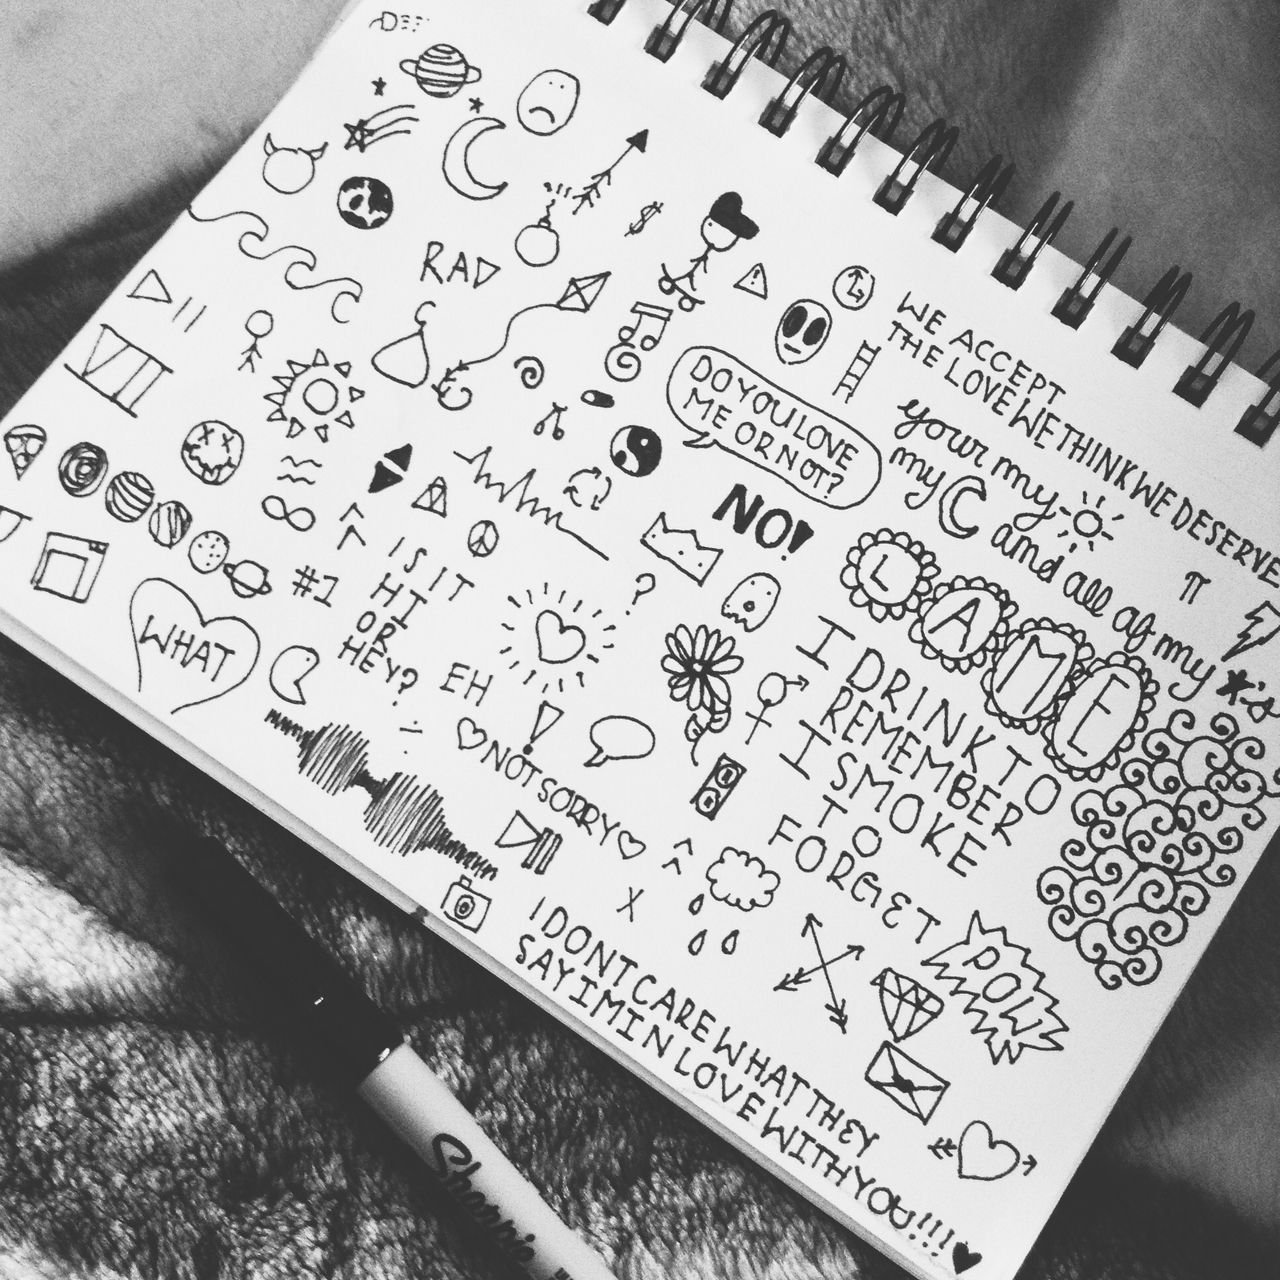 RAD
VII
$
WE ACCEPT
THE LOVE WE THINK WE DESERVE
DO YOU LOVE
ME OR NOT?
your my
my
and all of my *'s
NO!
π
LAME
#1
IS IT
HI
OR
HEY?
?
WHAT
EH
÷
!
NOT SORRY
I DRINK TO
REMEMBER
I SMOKE
TO
FORGET
X
POW
I DONT CARE WHAT THEY
SAY IM IN LOVE WITH YOU!!!
Sharpie